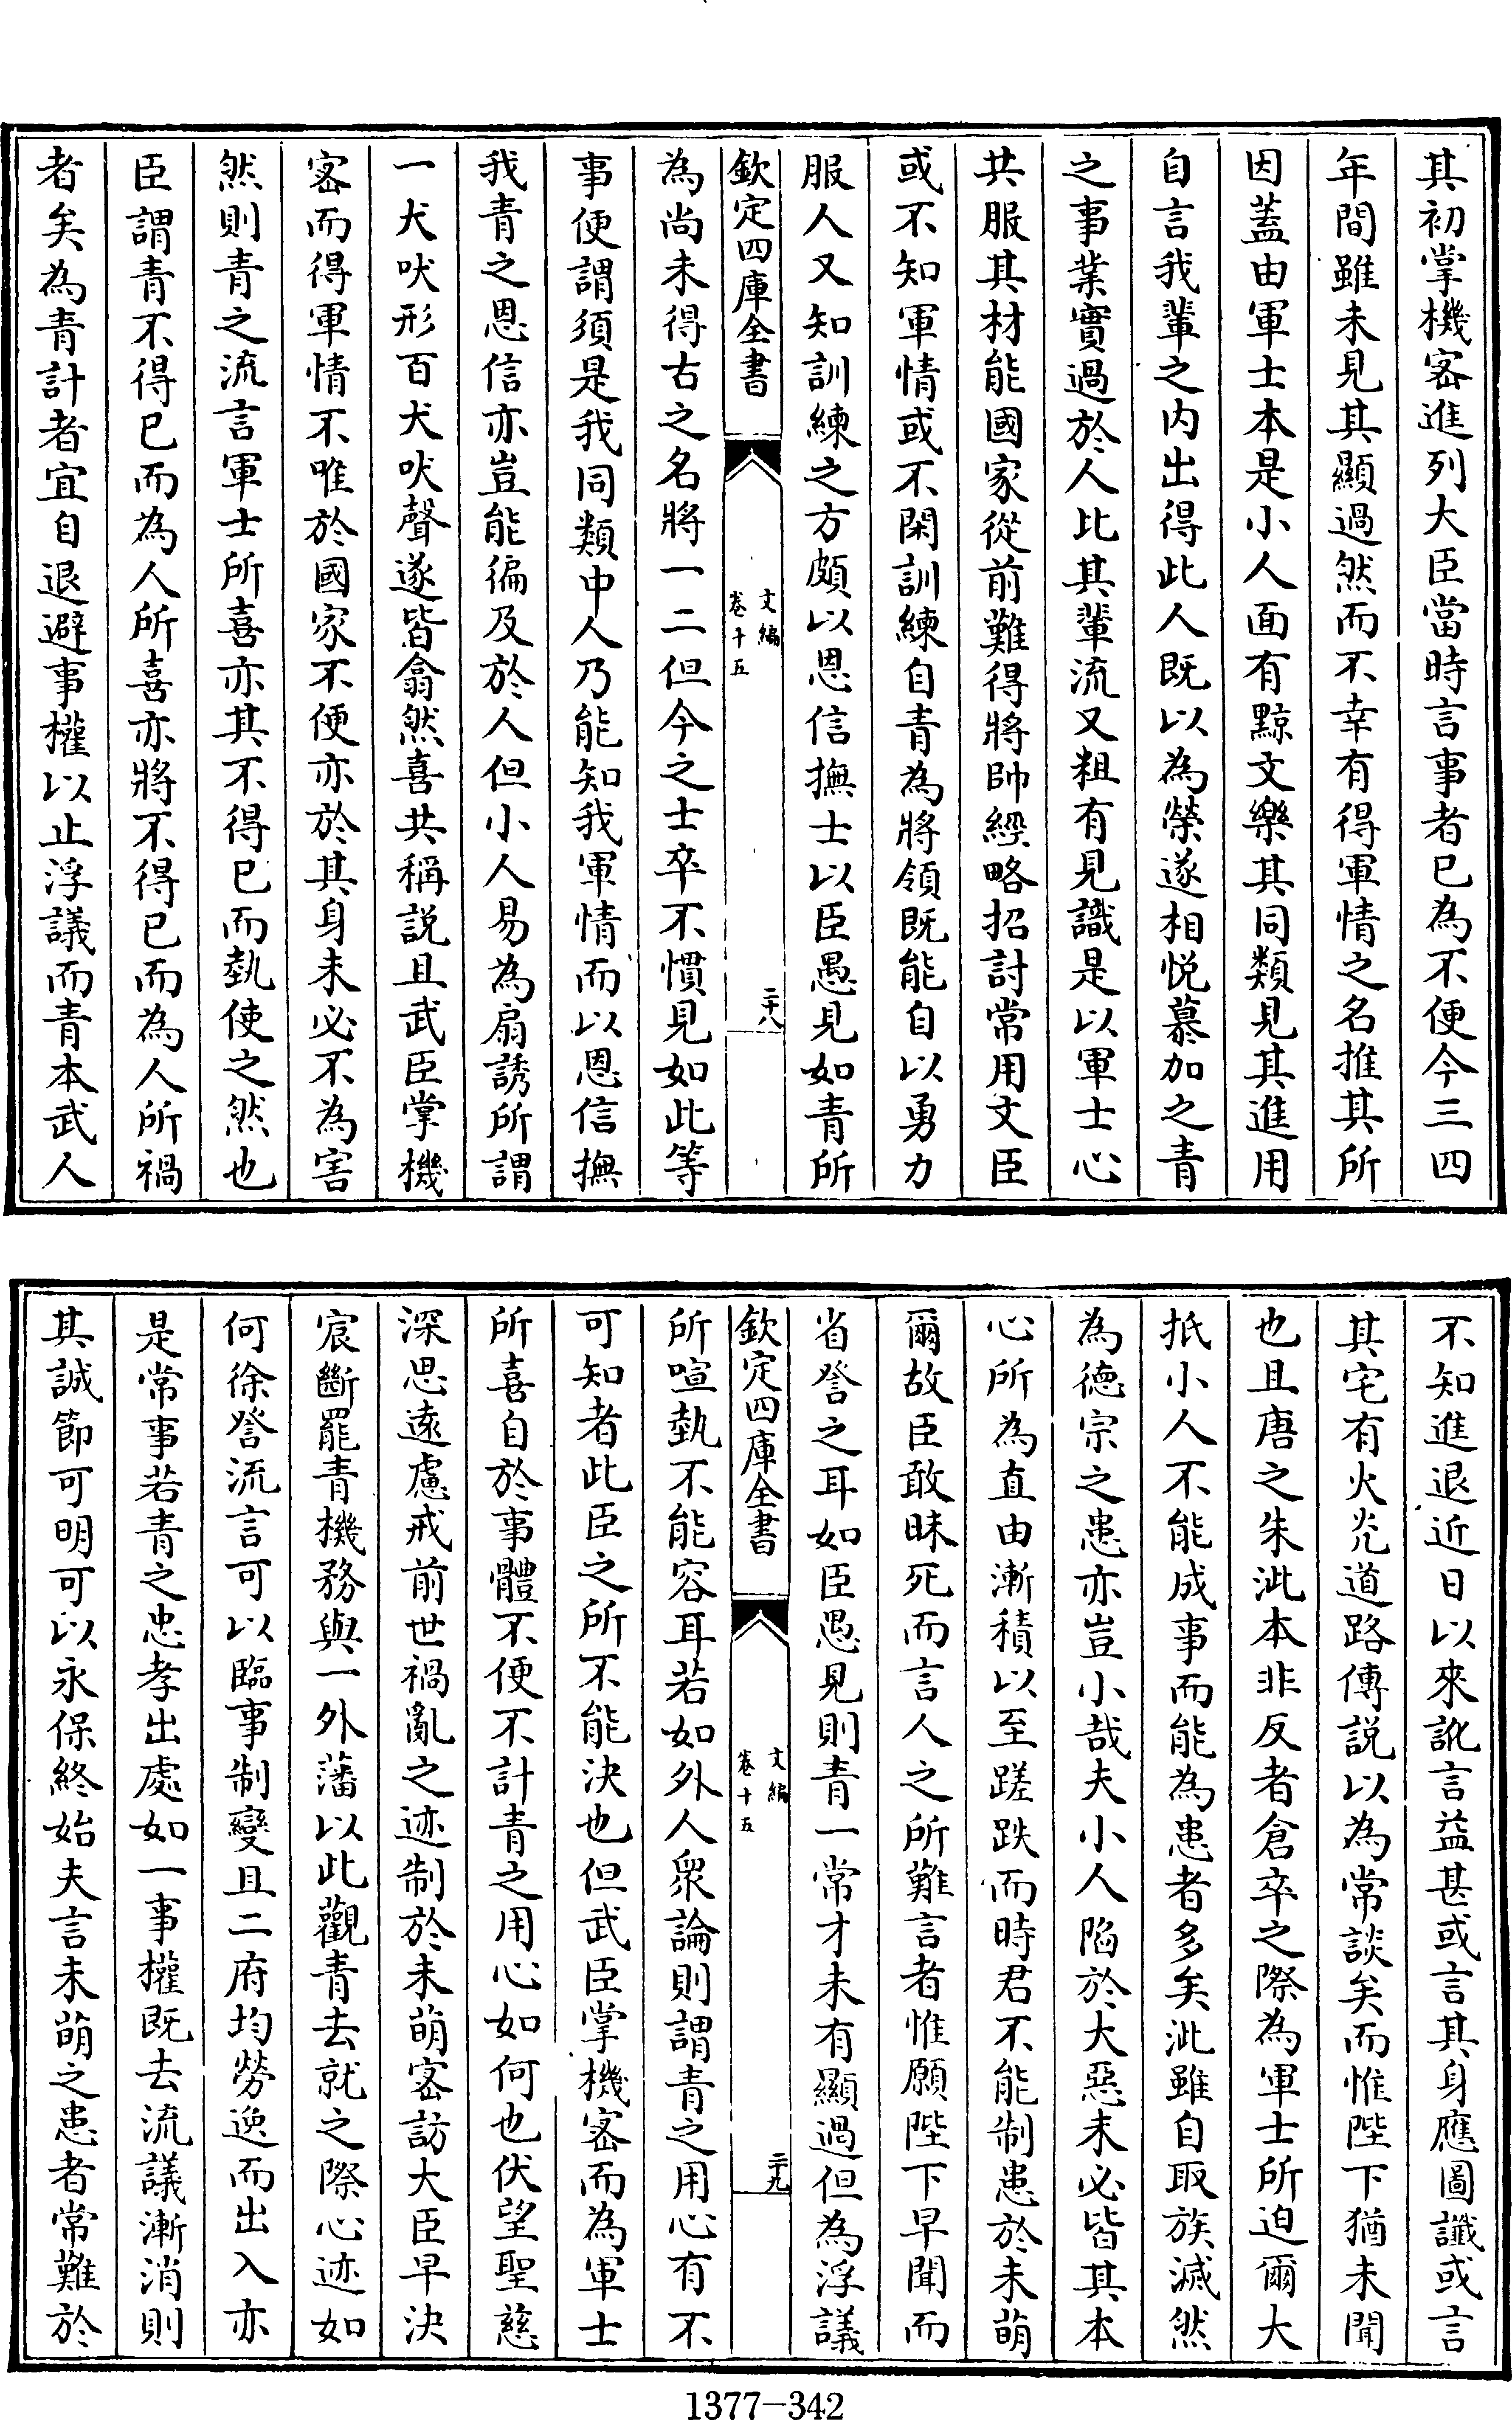 其初掌機宻進列大臣當時言事者已為不便今三四
年間雖未見其顯過然而不幸有得軍情之名推其所
因蓋由軍士本是小人面有黥文樂其同類見其進用
自言我輩之内出得此人既以為榮遂相悦慕加之青
之事業實過於人比其輩流又粗有見識是以軍士心
共服其材能國家從前難得將帥經略招討常用文臣
或不知軍情或不閑訓練自青為將領既能自以勇力
服人又知訓練之方頗以恩信撫士以臣愚見如青所
欽定四庫全書
文編
卷十五
二十八
為尚未得古之名將一二但今之士卒不慣見如此等
事便謂須是我同類中人乃能知我軍情而以恩信撫
我青之恩信亦豈能徧及於人但小人易為扇誘所謂
一犬吠形百犬吠聲遂皆翕然喜共稱説且武臣掌機
宻而得軍情不唯於國家不便亦於其身未必不為害
然則青之流言軍士所喜亦其不得已而埶使之然也
臣謂青不得已而為人所喜亦將不得已而為人所禍
者矣為青計者宜自退避事權以止浮議而青本武人
不知進退近日以來訛言益甚或言其身應圖讖或言
其宅有火光道路傳説以為常談矣而惟陛下猶未聞
也且唐之朱泚本非反者倉卒之際為軍士所迫爾大
抵小人不能成事而能為患者多矣泚雖自取族滅然
為德宗之患亦豈小哉夫小人陷於大惡未必皆其本
心所為直由漸積以至蹉跌而時君不能制患於未萌
爾故臣敢昧死而言人之所難言者惟願陛下早聞而
省詧之耳如臣愚見則青一常才未有顯過但為浮議
欽定四庫全書
文編
卷十五
二十九
所喧埶不能容耳若如外人衆論則謂青之用心有不
可知者此臣之所不能決也但武臣掌機宻而為軍士
所喜自於事體不便不計青之用心如何也伏望聖慈
深思遠慮戒前世禍亂之迹制於未萌宻訪大臣早決
宸斷罷青機務與一外藩以此觀青去就之際心迹如
何徐詧流言可以臨事制變且二府均勞逸而出入亦
是常事若青之忠孝出處如一事權既去流議漸消則
其誠節可明可以永保終始夫言未萌之患者常難於
1377—342